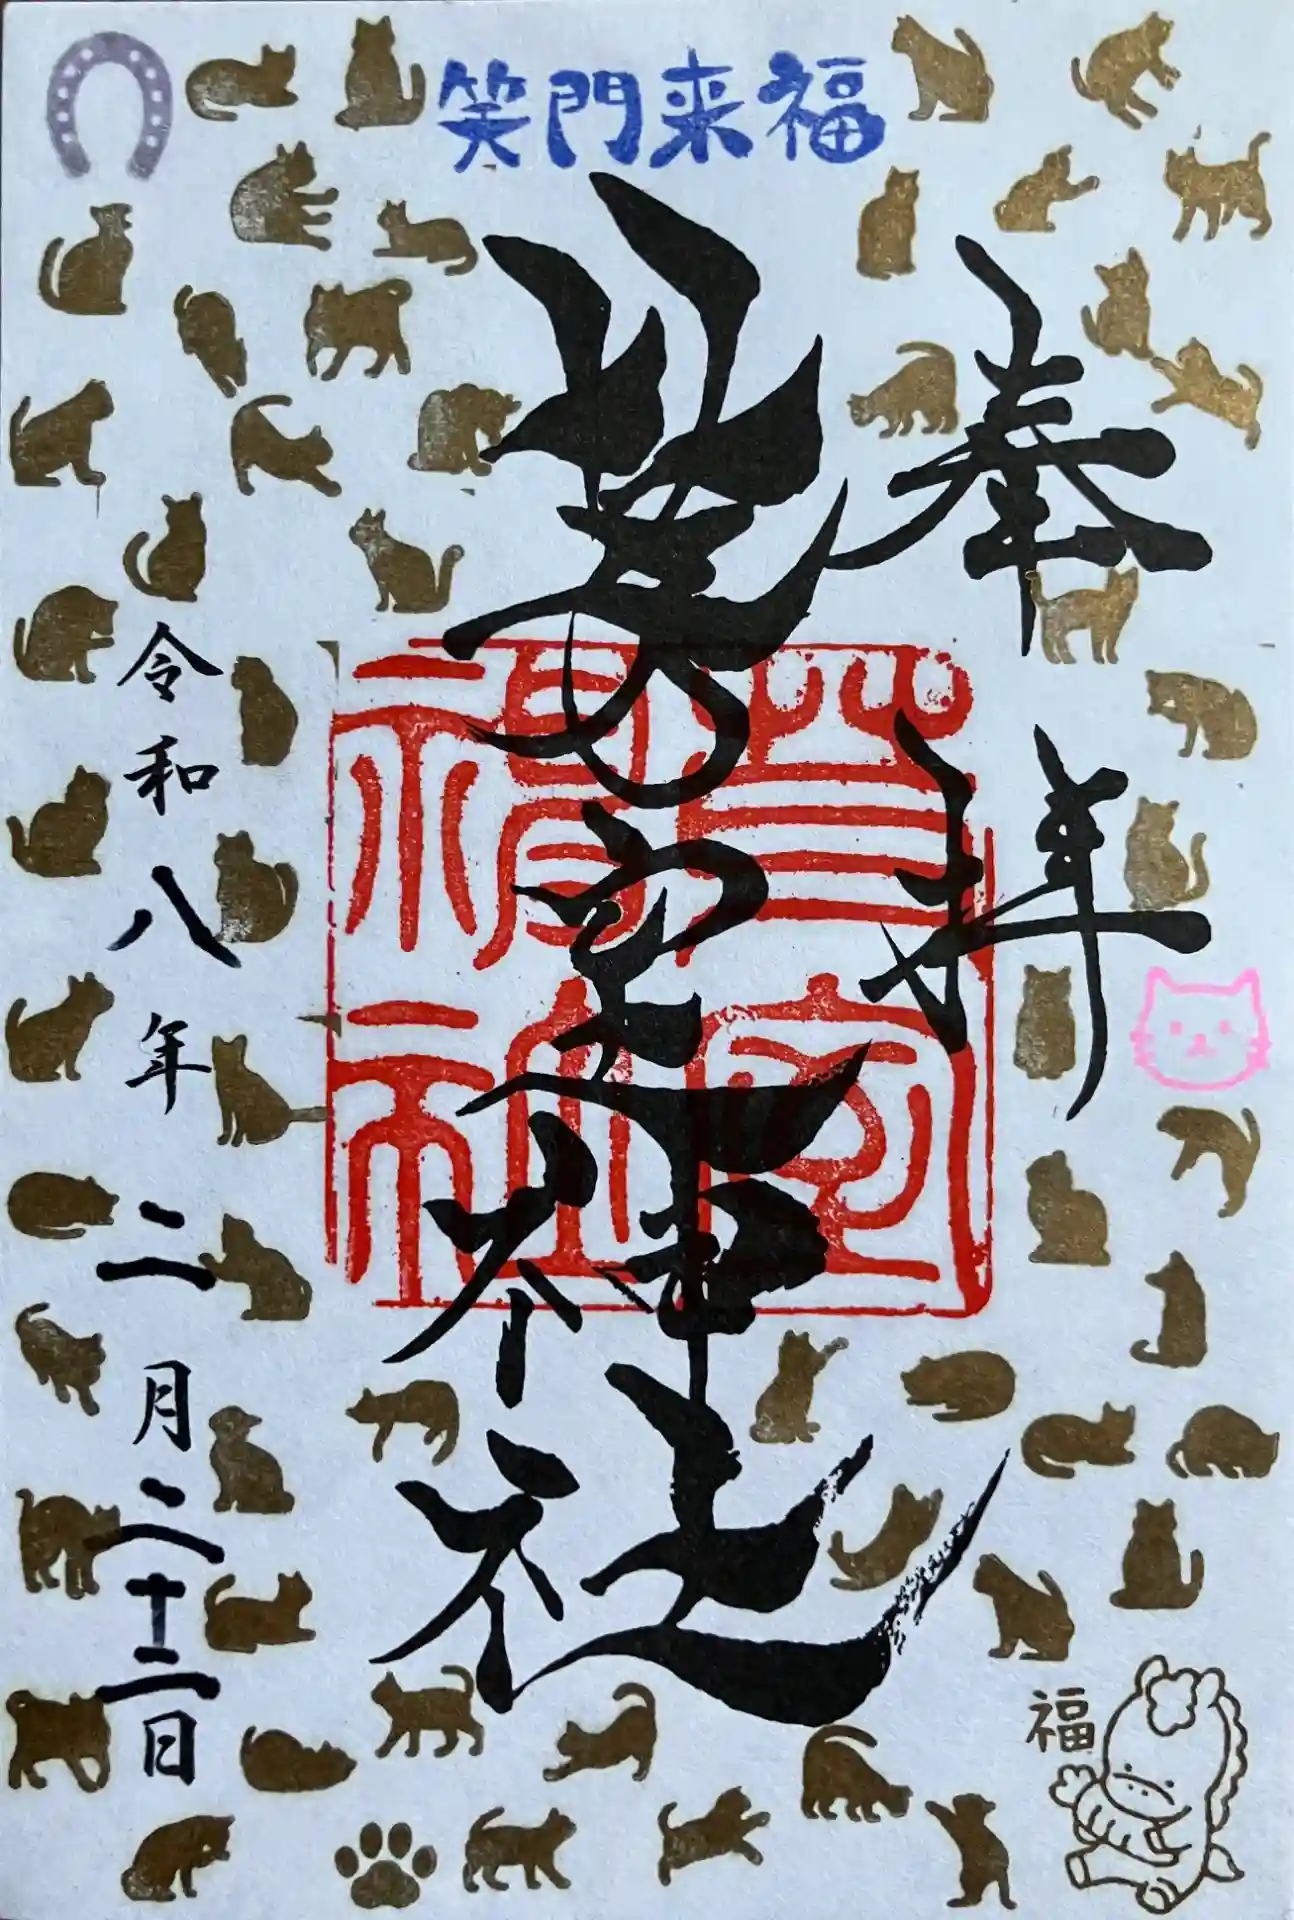 笑門来福
奉拝
室神社
令和八年二月二十二日
福